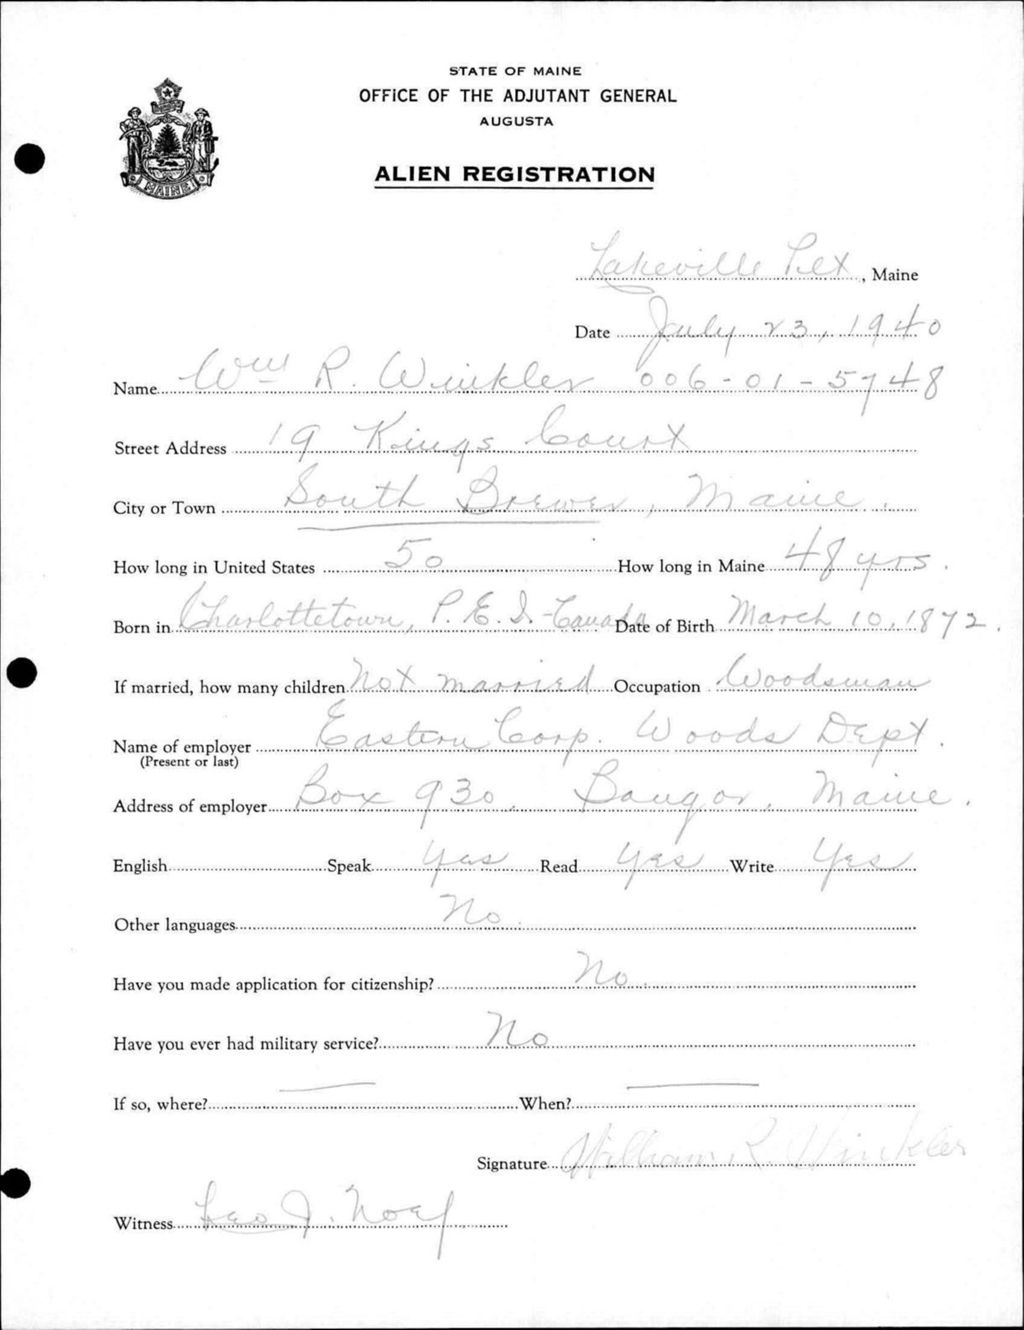 STATE OF MAINE
OFFICE OF THE ADJUTANT GENERAL
AUGUSTA
ALIEN REGISTRATION
MAINE
Lakeville Plt, Maine
Date July 23, 1940
Name Wm R. Winkler 006-01-5748
Street Address 19 Kings Court
City or Town South Brewer, Maine.
How long in United States 50 How long in Maine 48 yrs.
Born in Charlottetown, P. E. I. - Canada Date of Birth March 10, 1872.
If married, how many children Not married Occupation Woodsman
Name of employer Eastern Corp. Woods Dept.
(Present or last)
Address of employer Box 930, Bangor, Maine.
English Speak Yes Read Yes Write Yes
Other languages No.
Have you made application for citizenship? No.
Have you ever had military service? No
If so, where? — When? —
Signature William R. Winkler
Witness Leo J.